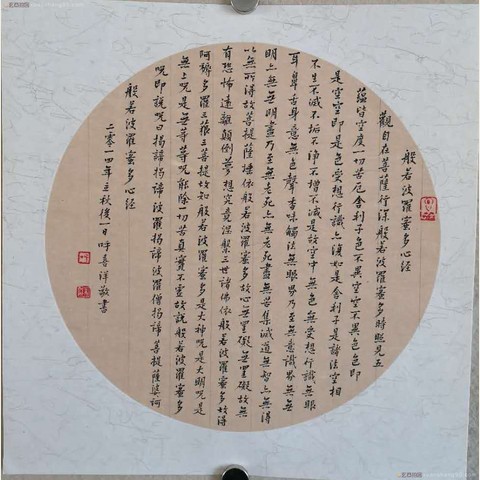 般若波羅蜜多心經
觀自在菩薩行深般若波羅蜜多時照見五
蘊皆空度一切苦厄舍利子色不異空空不異色色即
是空空即是色受想行識亦復如是舍利子是諸法空相
不生不滅不垢不淨不增不減是故空中無色無受想行識無眼
耳鼻舌身意無色聲香味觸法無眼界乃至無意識界無無
明亦無無明盡乃至無老死亦無老死盡無苦集滅道無智亦無得
以無所得故菩提薩埵依般若波羅蜜多故心無罣礙無罣礙故無
有恐怖遠離顛倒夢想究竟涅槃三世諸佛依般若波羅蜜多故得
阿耨多羅三藐三菩提故知般若波羅蜜多是大神呪是大明呪是
無上呪是無等等呪能除一切苦真實不虛故說般若波羅蜜多
呪即說呪曰揭諦揭諦波羅揭諦波羅僧揭諦菩提薩婆訶
般若波羅蜜多心經
二零一四年立秋後一日呼喜洋敬書